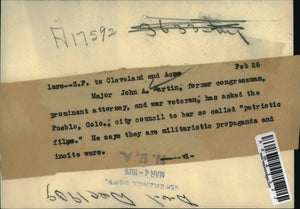 A17592
Feb 26
laro--S.F. to Cleveland and Acme
Major John A. Martin, former congressman,
prominent attorney, and war veteran, has asked the
Pueblo, Colo., city council to bar so called "patriotic
films." He says they are militaristic propaganda and
incite wars.
N.E.A.
MAR 4-1926
REFERENCE DEPT.